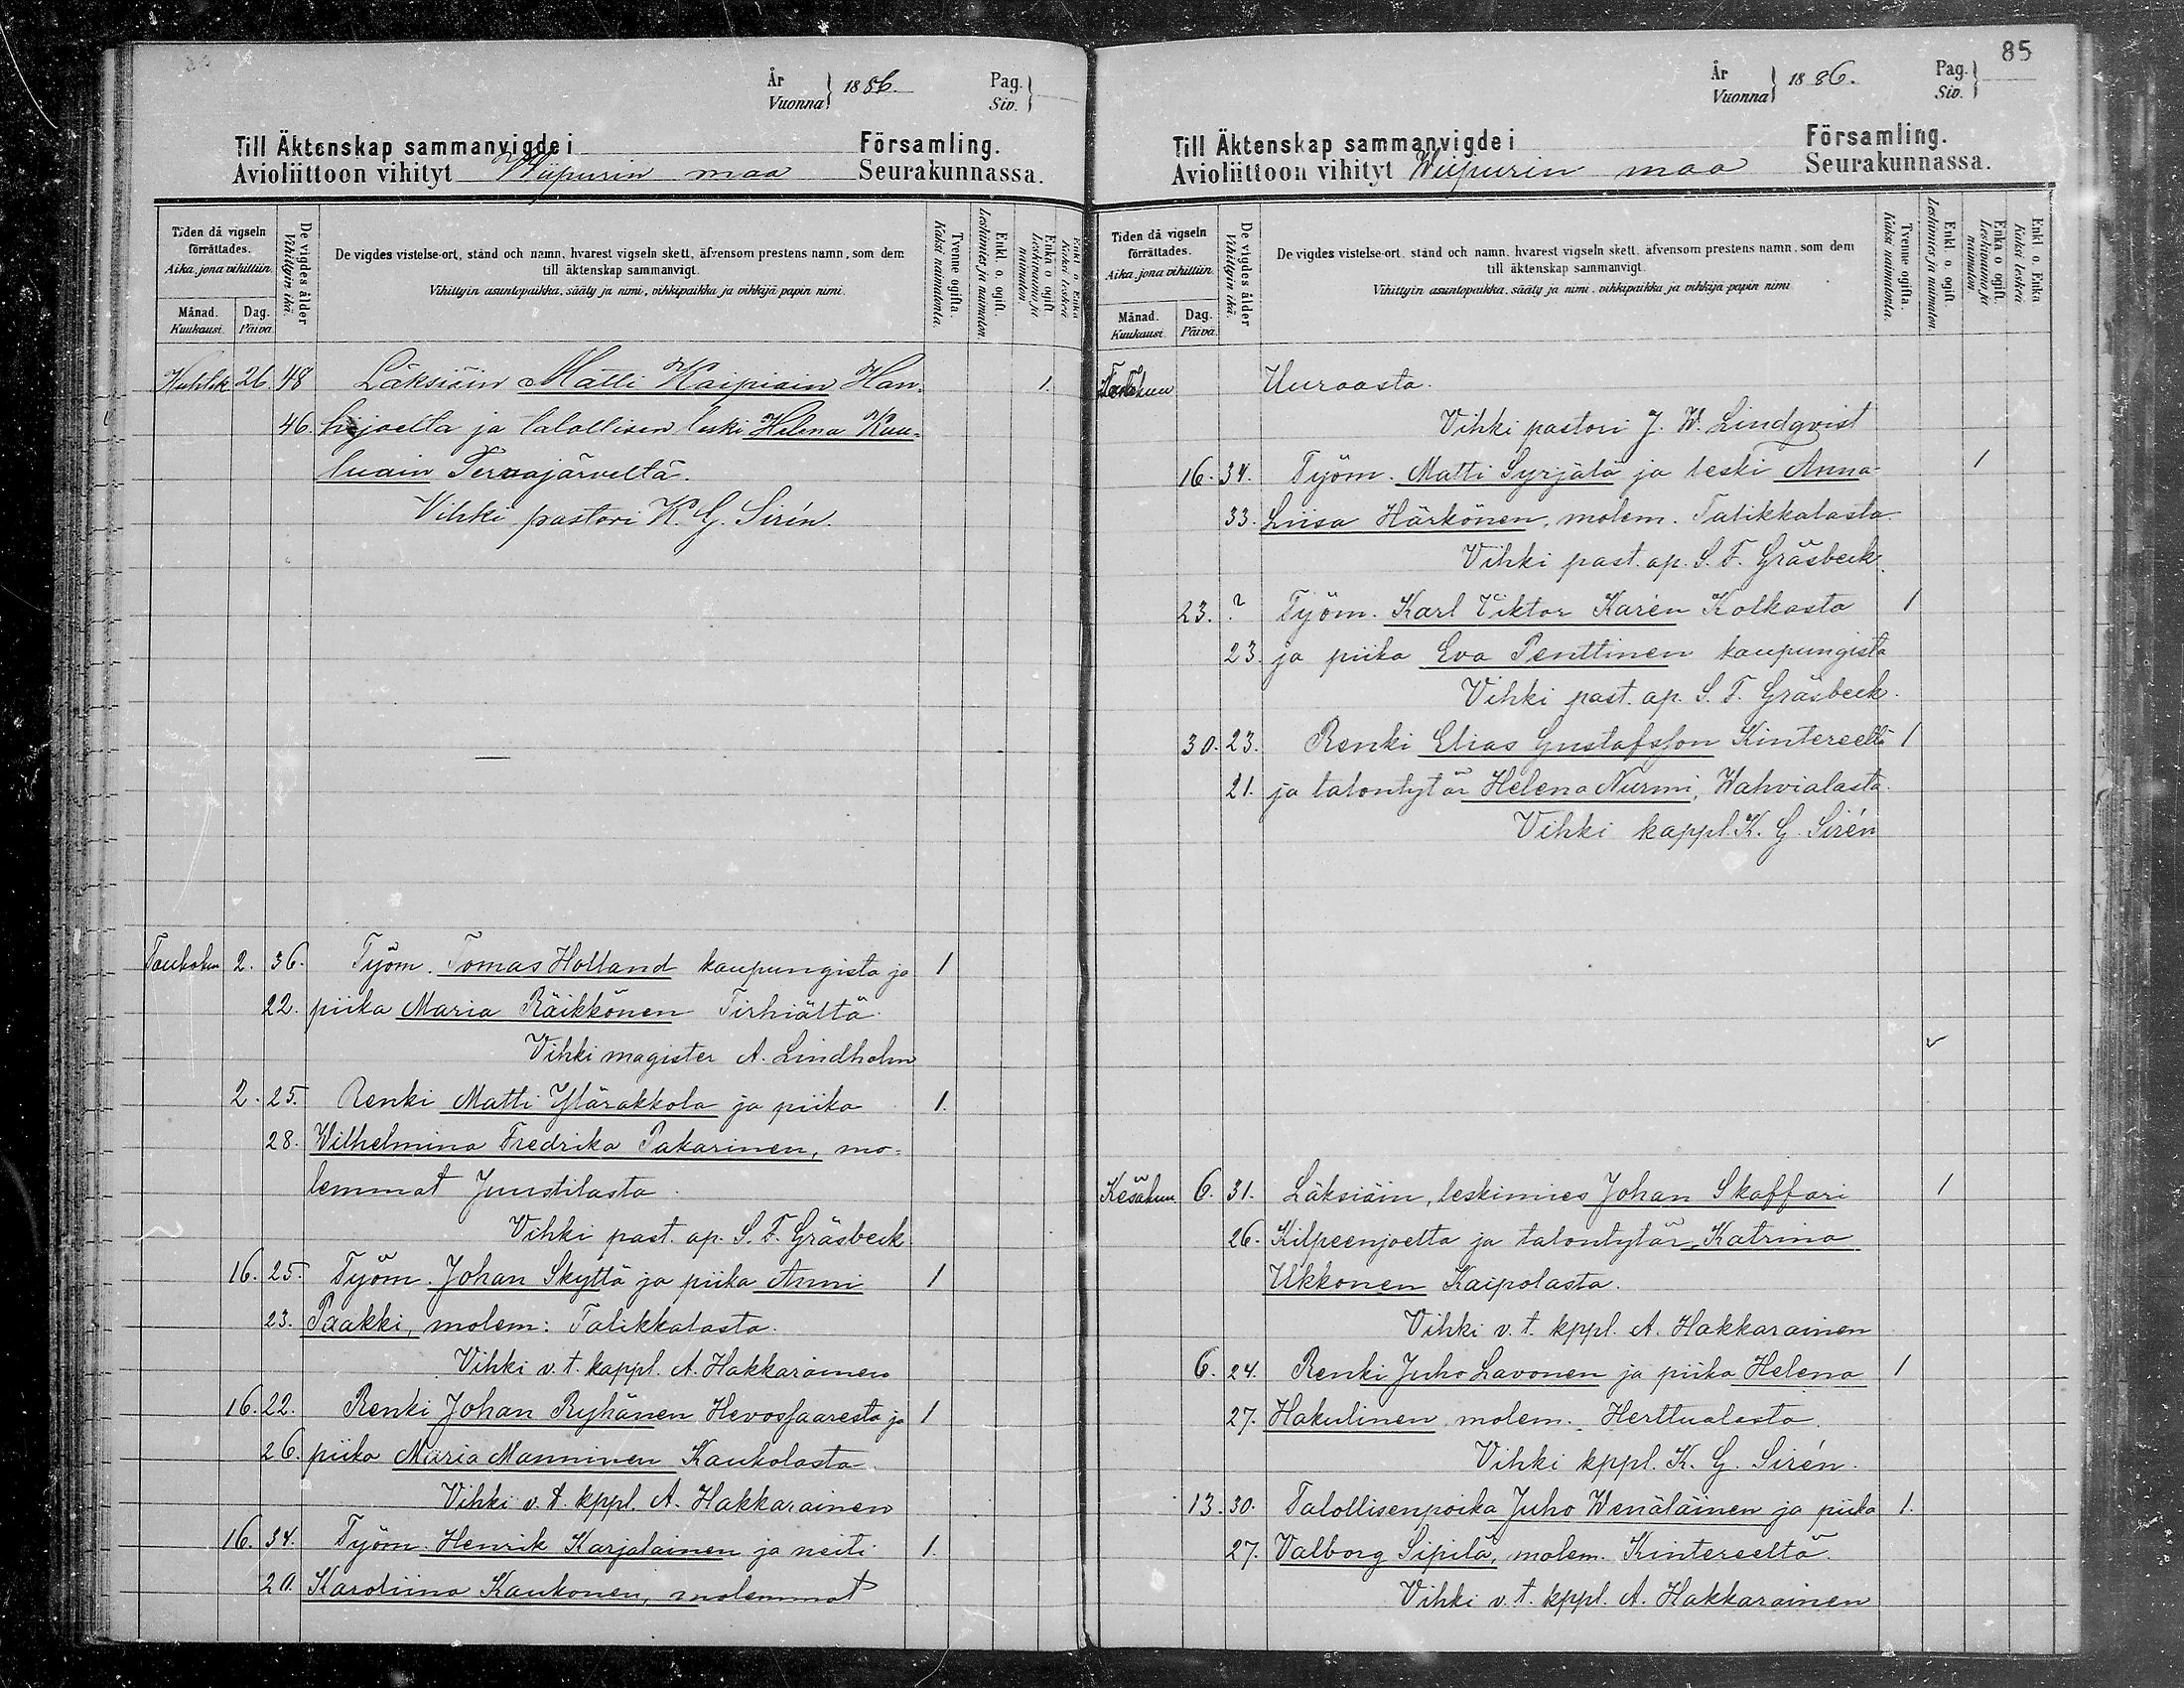 År
Vuonna } 1886. Pag.
Siv. }
Till Äktenskap sammanvigde i Församling.
Avioliittoon vihityt Wiipurin maa Seurakunnassa.
Tiden då vigseln förrättades.
Aika, jona vihittiin.
Månad.
Kuukausi.
Dag.
Päivä.
De vigdes ålder
Vihittyin ikä.
De vigdes vistelse-ort, stånd och namn, hvarest vigseln skett, äfvensom prestens namn, som dem
till äktenskap sammanvigt.
Vihittyin asuntopaikka, sääty ja nimi, vihkipaikka ja vihkijä papin nimi.
Tvenne ogifta.
Kaksi naimatonta.
Enkl. o. ogift.
Leskimies ja naimaton.
Enka o ogift.
Leskivaimo ja naimaton.
Enkl. o. Enka
Kaksi leskeä
Huhtik 26. 48 Läksiäin Matti Kaipiain Han- 1.
46. hijoelta ja talollisen leski Helena Kuu-
luain Tervajärveltä.
Vihki pastori K. G. Sirén.
Toukokuu 2. 36. Työm. Tomas Holland kaupungista ja 1
22. piika Maria Räikkönen Tirhiältä.
Vihki magister A. Lindholm
2. 25. Renki Matti Ylärakkola ja piika 1.
28. Wilhelmina Fredrika Pakarinen, mo-
lemmat Juustilasta.
Vihki past. ap. S. F. Gräsbeck.
16. 25. Työm. Johan Skyttä ja piika Anni 1
23. Paakki, molem: Talikkalasta.
Vihki v. t. kappl. A. Hakkarainen
16. 22. Renki Johan Ryhänen Hevossaaresta ja 1
26. piika Maria Manninen Kaukolasta.
Vihki v. t. kppl. A. Hakkarainen
16. 34. Työm. Henrik Karjalainen ja neiti 1.
20. Karoliina Kaukonen, molemmat
85
År
Vuonna } 1886. Pag.
Siv. }
Till Äktenskap sammanvigde i Församling.
Avioliittoon vihityt Wiipurin maa Seurakunnassa.
Tiden då vigseln förrättades.
Aika, jona vihittiin
Månad.
Kuukausi.
Dag.
Päivä.
De vigdes ålder
Vihittyin ikä.
De vigdes vistelse-ort, stånd och namn, hvarest vigseln skett, äfvensom prestens namn, som dem
till äktenskap sammanvigt.
Vihittyin asuntopaikka, sääty ja nimi, vihkipaikka ja vihkijä papin nimi
Tvenne ogifta.
Kaksi naimatonta.
Enkl o. ogift
Leskimies ja naimaton.
Enka o ogift.
Leskivaimo ja naimaton.
Enkl o. Enka
Kaksi leskeä
Uuraasta.
Vihki pastori J. W. Lindqvist
16. 34. Työm. Matti Syrjälä ja leski Anna- 1
33. Liisa Härkönen, molem. Talikkalasta
Vihki past. ap. S. F. Gräsbeck.
23. ? Työm. Karl Viktor Karén Kolkasta 1
23. ja piika Eva Penttinen kaupungista
Vihki past. ap. S. F. Gräsbeck.
30. 23. Renki Elias Gustafsson Kintereeltä 1
21. ja talontytär Helena Nurmi, Wahvialasta.
Vihki kappl. K. G. Sirén
Kesäkuu 6. 31. Läksiäin, leskimies Johan Skaffari 1
26. Kilpeenjoelta ja talontytär Katrina
Ukkonen Kaipolasta.
Vihki v. t. kppl. A. Hakkarainen
6. 24. Renki Juho Lavonen ja piika Helena 1
27. Hakulinen molem. Herttualasta.
Vihki kppl. K. G. Sirén.
13. 30. Talollisenpoika Juho Wenäläinen ja piika 1.
27. Valborg Sipilä, molem. Kintereeltä.
Vihki v. t. kppl. A. Hakkarainen